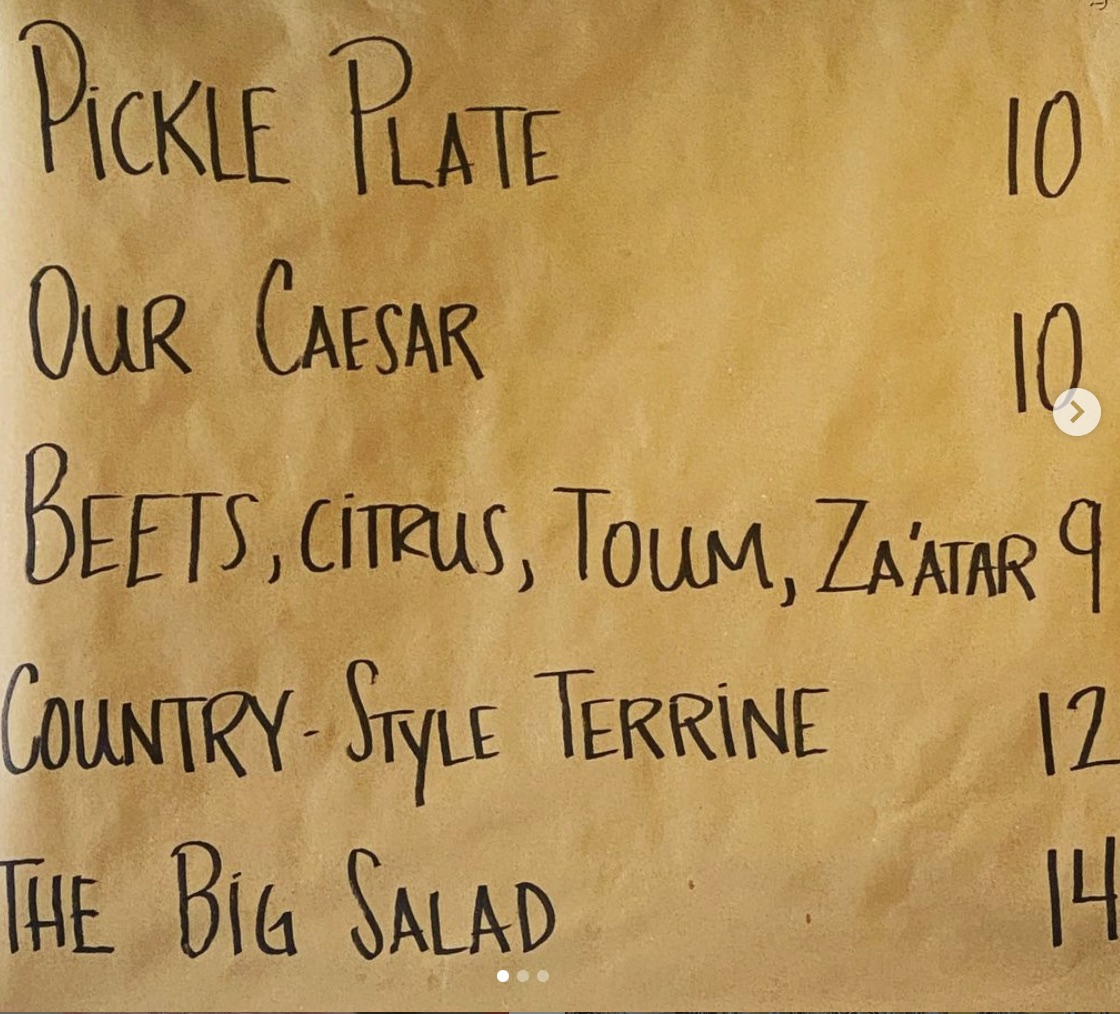 Pickle Plate 10
Our Caesar 10
Beets, citrus, Toum, Za'atar 9
Country-Style Terrine 12
The Big Salad 14